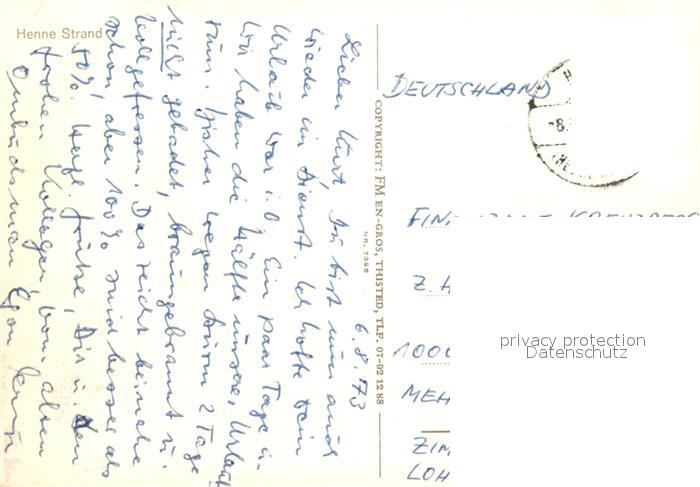 Henne Strand
6.8.73
Lieber Kurt, Du bist nun auch
wieder im Dienst. Ich hoffe Dein
Urlaub war i.O. Ein paar Tage u.
wir haben die Hälfte unseres Urlaub
rum. Bisher wegen Sturm 2 Tage
nicht gebadet, braungebrannt u.
vollgefressen. Das reicht beinahe
schon, aber 100% sind besser als
50%. Herzl. Grüße, Dir u. den
frohen Kollegen, vom alten
Ombudsman Egon
COPYRIGHT: FM EN-GROS, THISTED, TLF. 07-92 12 88
NR. 7398
DEUTSCHLAND
-8.
Z. H
1000
MEH
ZIM
LOH
privacy protection
Datenschutz